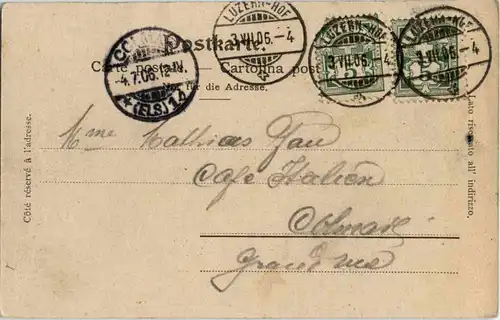 Postkarte.
Carte postale. — Cartolina post
Nur für die Adresse.
LUZERN-HOF
3.VII.06.–4
LUZERN-HOF
3.VII.06.–4
LUZERN-HOF
3.VII.06.–4
4.7.06.
(ELS.)
5
5
Côté réservé à l'adresse.
Lato riservato all' indirizzo.
Mme Mathias
Café Italien
Colmar
Grand rue